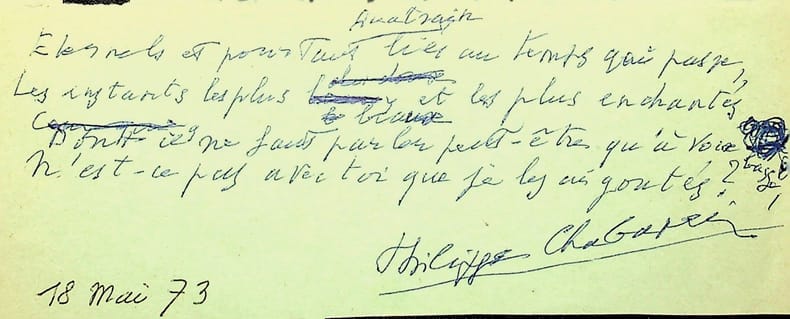 Quatrain
Eternels et pourtant liés au temps qui passe,
Les instants les plus et les plus enchantés
beaux
Dont il ne faut parler peut-être qu'à voix
basse,
N'est-ce pas avec toi que je les ai goûtés ?
Philippe Chabaneix
18 Mai 73